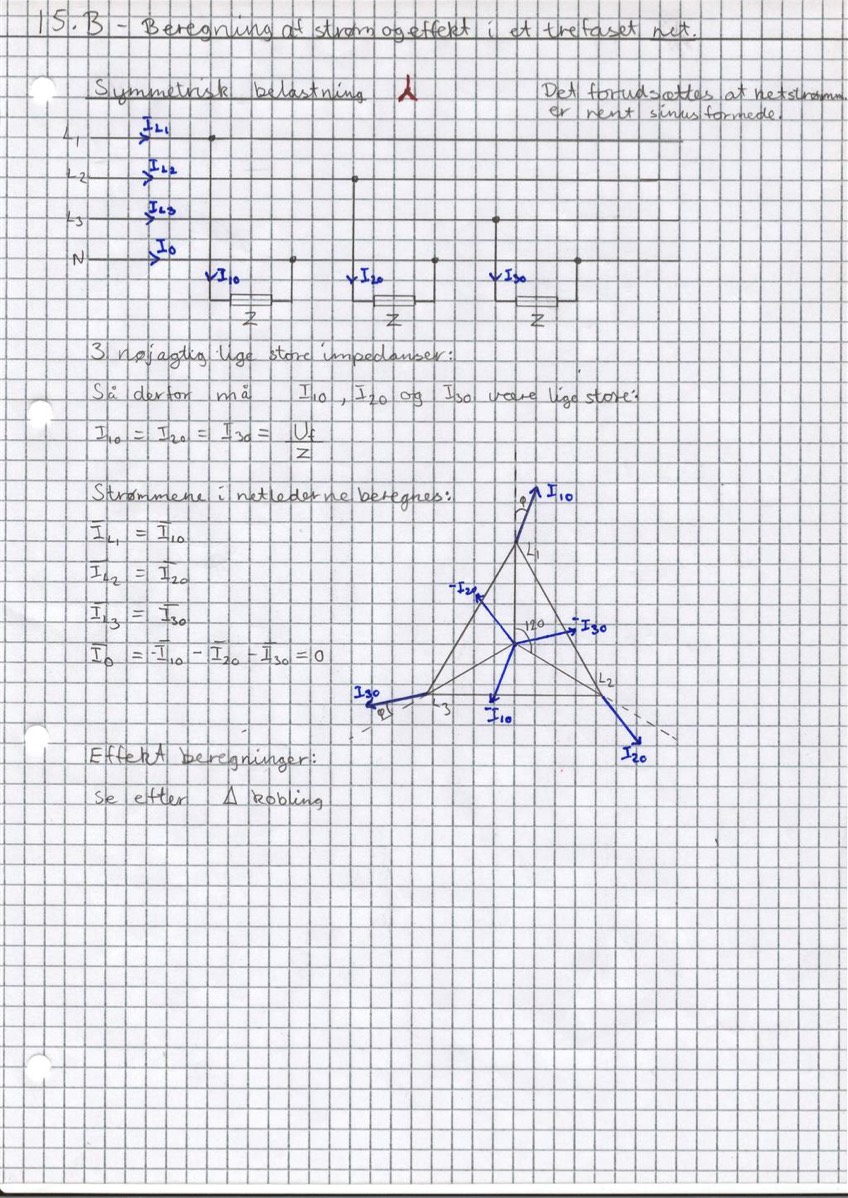 15.B - Beregning af strøm og effekt i et trefaset net.
Symmetrisk belastning ⅄
Det forudsættes at netstrømm.
er rent sinusformede.
L1 IL1
L2 IL2
L3 IL3
N I0
I10 I20 I30
Z Z Z
3 nøjagtig lige store impedanser:
Så derfor må I10, I20 og I30 være lige store:
I10 = I20 = I30 = Uf/Z
Strømmene i netlederne beregnes:
I̅L1 = I̅10
I̅L2 = I̅20
I̅L3 = I̅30
I̅0 = -I̅10 - I̅20 - I̅30 = 0
φ I10
L1
-I20
120 -I30
L2
I30
φ 3 -I10
I20
Effekt beregninger:
Se efter Δ kobling